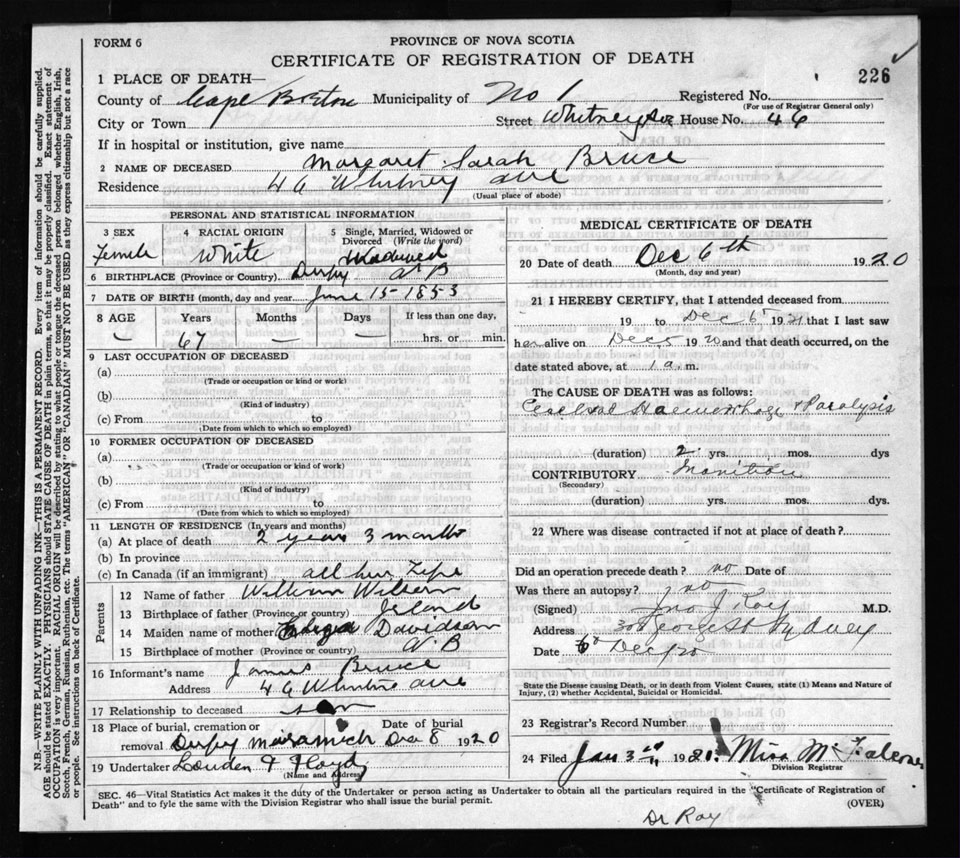 FORM 6
PROVINCE OF NOVA SCOTIA
CERTIFICATE OF REGISTRATION OF DEATH
226
1 PLACE OF DEATH—
County of Cape Breton Municipality of No 1 Registered No.
(For use of Registrar General only)
City or Town Street Whitney Ave House No. 46
If in hospital or institution, give name
2 NAME OF DECEASED Margaret Sarah Bruce
Residence 46 Whitney ave
(Usual place of abode)
PERSONAL AND STATISTICAL INFORMATION
3 SEX
Female
4 RACIAL ORIGIN
White
5 Single, Married, Widowed or Divorced (Write the word)
Widowed
6 BIRTHPLACE (Province or Country) Derby N B
7 DATE OF BIRTH (month, day and year) June 15-1853
8 AGE Years Months Days If less than one day,
— 67 — — hrs. or min.
9 LAST OCCUPATION OF DECEASED
(a)
(Trade or occupation or kind or work)
(b)
(Kind of industry)
(c) From to
(Date from which to which so employed)
10 FORMER OCCUPATION OF DECEASED
(a)
(Trade or occupation or kind of work)
(b)
(Kind of industry)
(c) From to
(Date from which to which so employed)
11 LENGTH OF RESIDENCE (In years and months)
(a) At place of death 2 years 3 months
(b) In province
(c) In Canada (if an immigrant) all her Life
Parents
12 Name of father William Wilson
13 Birthplace of father (Province or country)
14 Maiden name of mother Davidson
15 Birthplace of mother (Province or country) N B
16 Informant's name James Bruce
Address 46 Whitney ave
17 Relationship to deceased son
18 Place of burial, cremation or removal Derby Date of burial Dec 8 1920
19 Undertaker Louden & Floyd
(Name and Address)
MEDICAL CERTIFICATE OF DEATH
20 Date of death Dec 6th 1920
(Month, day and year)
21 I HEREBY CERTIFY, that I attended deceased from
19 to Dec 6 19 that I last saw
her alive on Dec 5 1920 and that death occurred, on the
date stated above, at 1 a. m.
The CAUSE OF DEATH was as follows:
Cerebral Haemorrhage & Paralysis
(duration) 2 yrs. mos. dys
CONTRIBUTORY
(Secondary)
(duration) yrs. mos. dys.
22 Where was disease contracted if not at place of death?
Did an operation precede death? no Date of
Was there an autopsy? no
(Signed) Jno J Roy M.D.
Address George St Sydney
Date 6 Dec/20
State the Disease causing Death, or in death from Violent Causes, state (1) Means and Nature of
Injury, (2) whether Accidental, Suicidal or Homicidal.
23 Registrar's Record Number
24 Filed Jan 3rd 1921. Miss
Division Registrar
SEC. 46—Vital Statistics Act makes it the duty of the Undertaker or person acting as Undertaker to obtain all the particulars required in the "Certificate of Registration of
Death" and to fyle the same with the Division Registrar who shall issue the burial permit.
(OVER)
Dr Roy
N.B.—WRITE PLAINLY WITH UNFADING INK—THIS IS A PERMANENT RECORD. Every item of information should be carefully supplied.
AGE should be stated EXACTLY. PHYSICIANS should STATE CAUSE OF DEATH in plain terms, so that it may be properly classified. Exact statement of
OCCUPATION is very important. RACIAL ORIGIN will be described by stating to what people or tongue the deceased person belonged whether English, Irish,
Scotch, French, German, Russian, Ruthenian, etc. The terms "AMERICAN" OR "CANADIAN" MUST NOT BE USED as they express citizenship but not a race
or people. See instructions on back of Certificate.